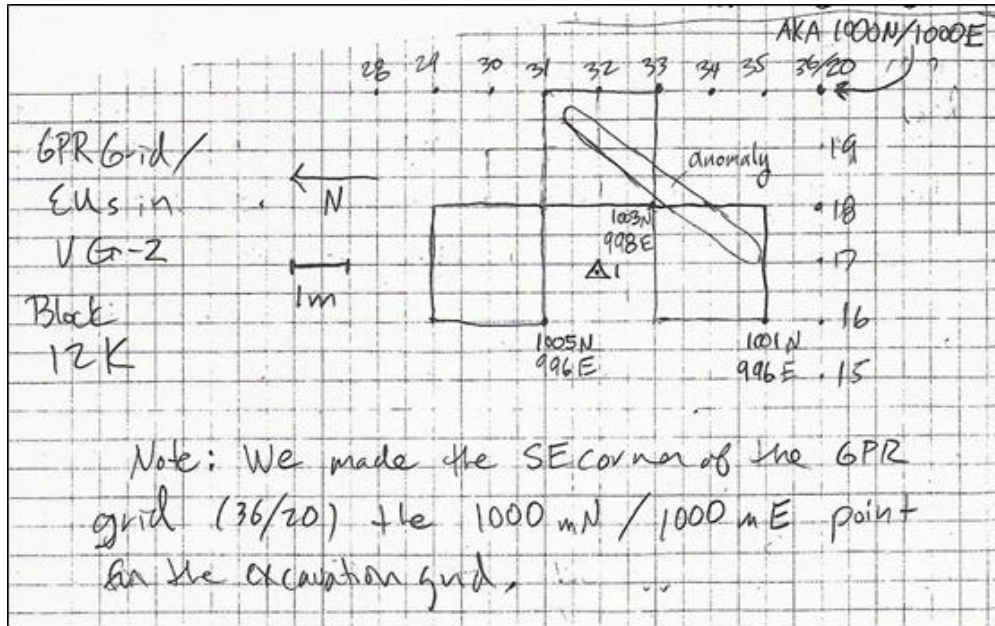 AKA 1000N/1000E
28 29 30 31 32 33 34 35 36/20
19
18
17
16
15
GPR Grid/
EUs in
VG-2
Block
12K
N
1m
anomaly
1003N
998E
1
1005N
996E
1001N
996E
Note: We made the SE corner of the GPR
grid (36/20) the 1000 mN / 1000 mE point
the excavation grid.